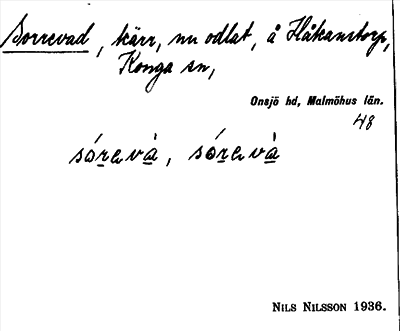 Sorrevad, kärr, nu odlat, å Håkanstorp,
Konga sn,
Onsjö hd, Malmöhus län.
48
sórevà, sórevà
NILS NILSSON 1936.